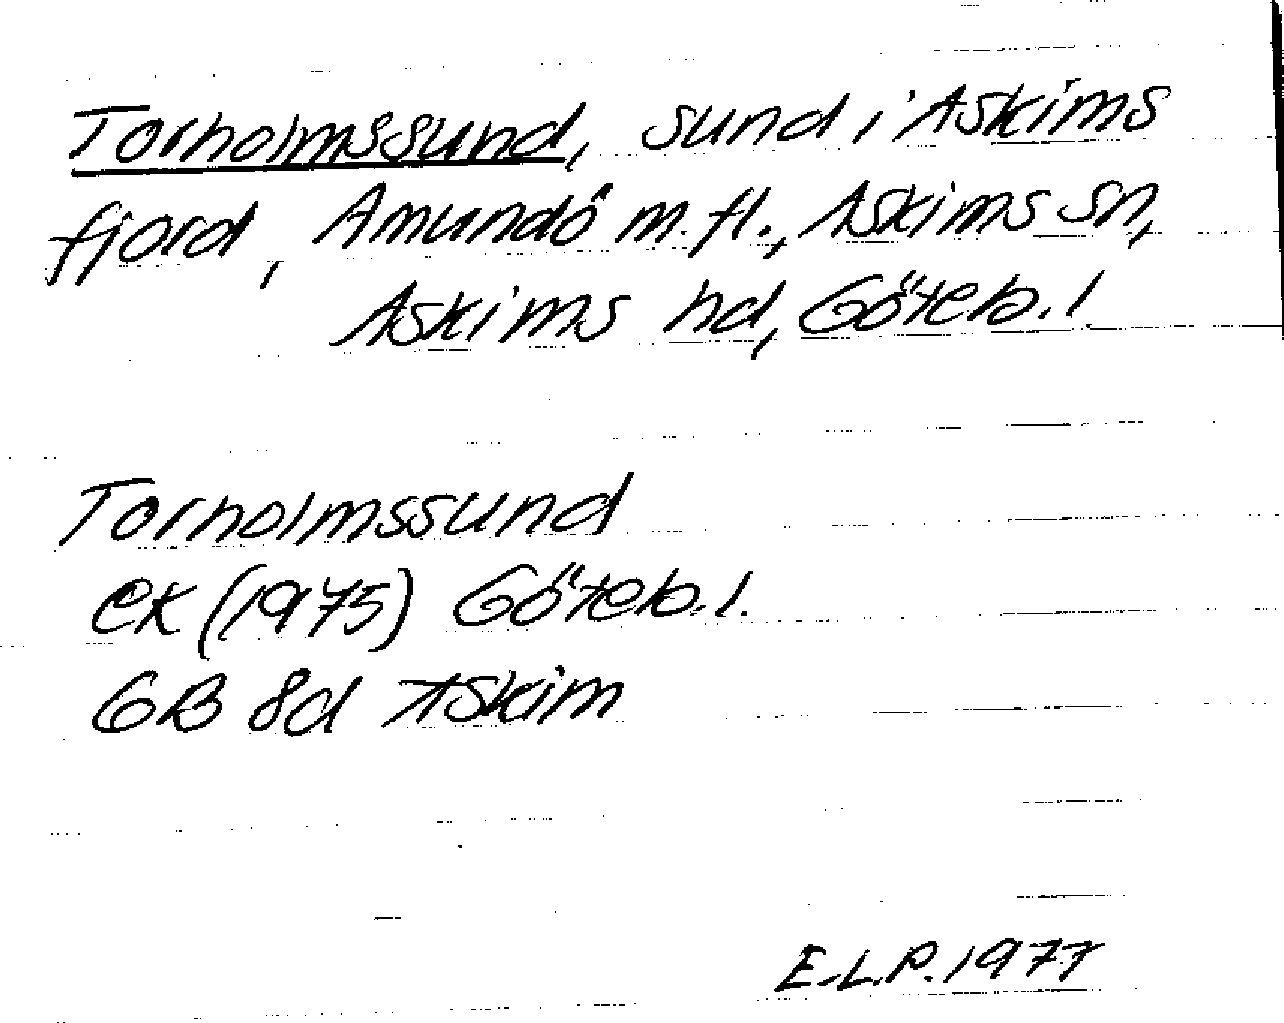 Torholmssund, sund i Askims
fjord, Amundö m.fl., Askims sn,
Askims hd, Göteb. l
Torholmssund
ek (1975) Göteb. l.
GB 8d Askim
E.L.P. 1977